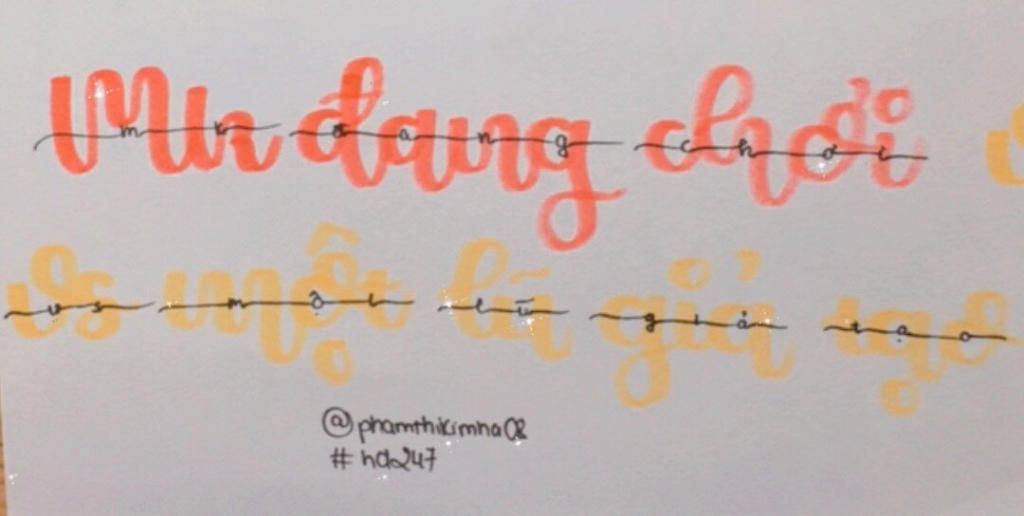 Mk đang chơi
vs một lũ giả tạo
@phamthikimha08
#hds247